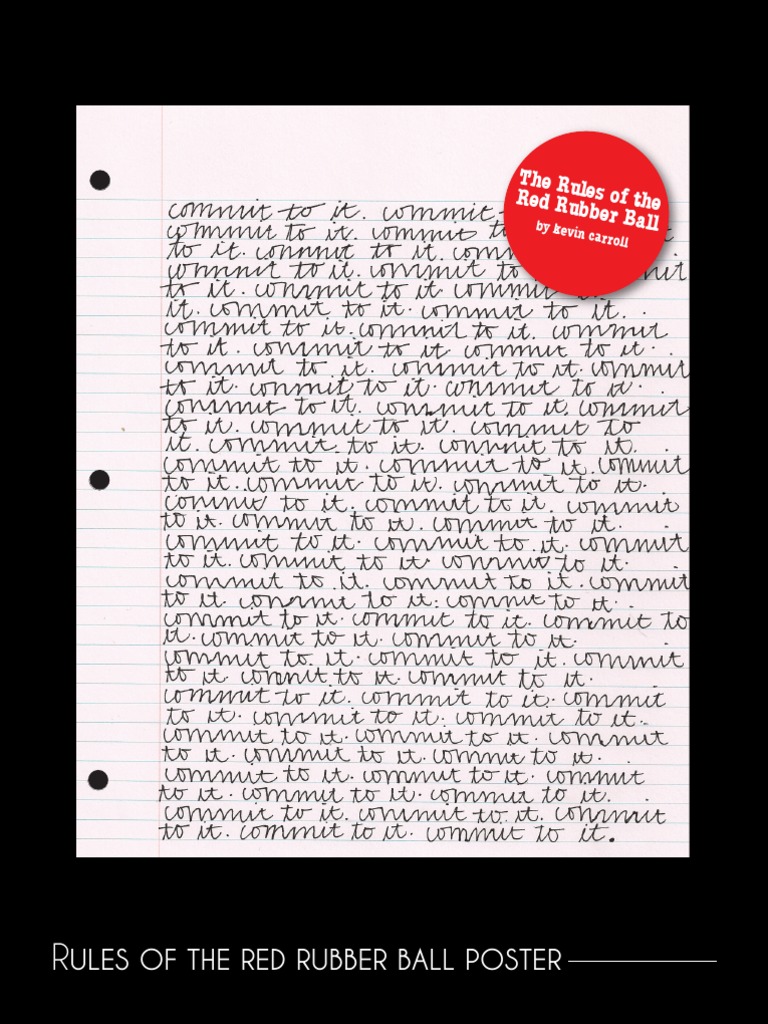 The Rules of the
Red Rubber Ball
by kevin carroll
commit to it. commit
commit to it. commit to
to it. commit to it.
commit to it. commit to
to it. commit to it. commit
it. commit to it. commit to it.
commit to it. commit to it. commit
to it. commit to it commit to it.
commit to it. commit to it. commit
to it. commit to it. commit to it.
commit to it. commit to it. commit
to it. commit to it. commit to
it. commit to it. commit to it.
commit to it. commit to it. commit
to it. commit to it. commit to it.
commit to it. commit to it. commit
to it. commit to it. commit to it.
commit to it. commit to it. commit
to it. commit to it. commit to it.
commit to it. commit to it. commit
to it. commit to it. commit to it.
commit to it. commit to it. commit to
it. commit to it. commit to it.
commit to it. commit to it. commit
to it commit to it. commit to it.
commit to it. commit to it. commit
to it. commit to it. commit to it.
commit to it. commit to it. commit
to it. commit to it. commit to it.
commit to it. commit to it. commit
to it. commit to it. commit to it.
commit to it. commit to it. commit
to it. commit to it. commit to it.
Rules of the red rubber ball poster